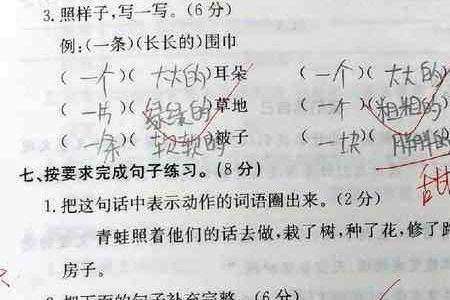 3.照样子,写一写。(6分)
例:(一条)(长长的)围巾
(一个)(大大的)耳朵 (一个)(大大的)
(一片)(绿绿的)草地 (一个)(粗粗的)
(一条)(软软的)被子 (一块)(胖胖的)
甜
七、按要求完成句子练习。(8分)
1.把这句话中表示动作的词语圈出来。(2分)
青蛙照着他们的话去做,栽了树,种了花,修了路
房子。